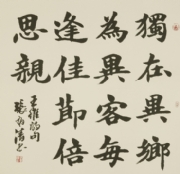 獨在異鄉
為異客每
逢佳節倍
思親
王維詩句